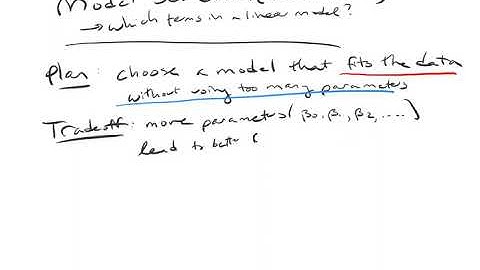 Model
→ which terms in a linear model?
Plan: choose a model that fits the data
without using too many parameters
Tradeoff: more parameters( β0, β1, β2, .... )
lead to better (